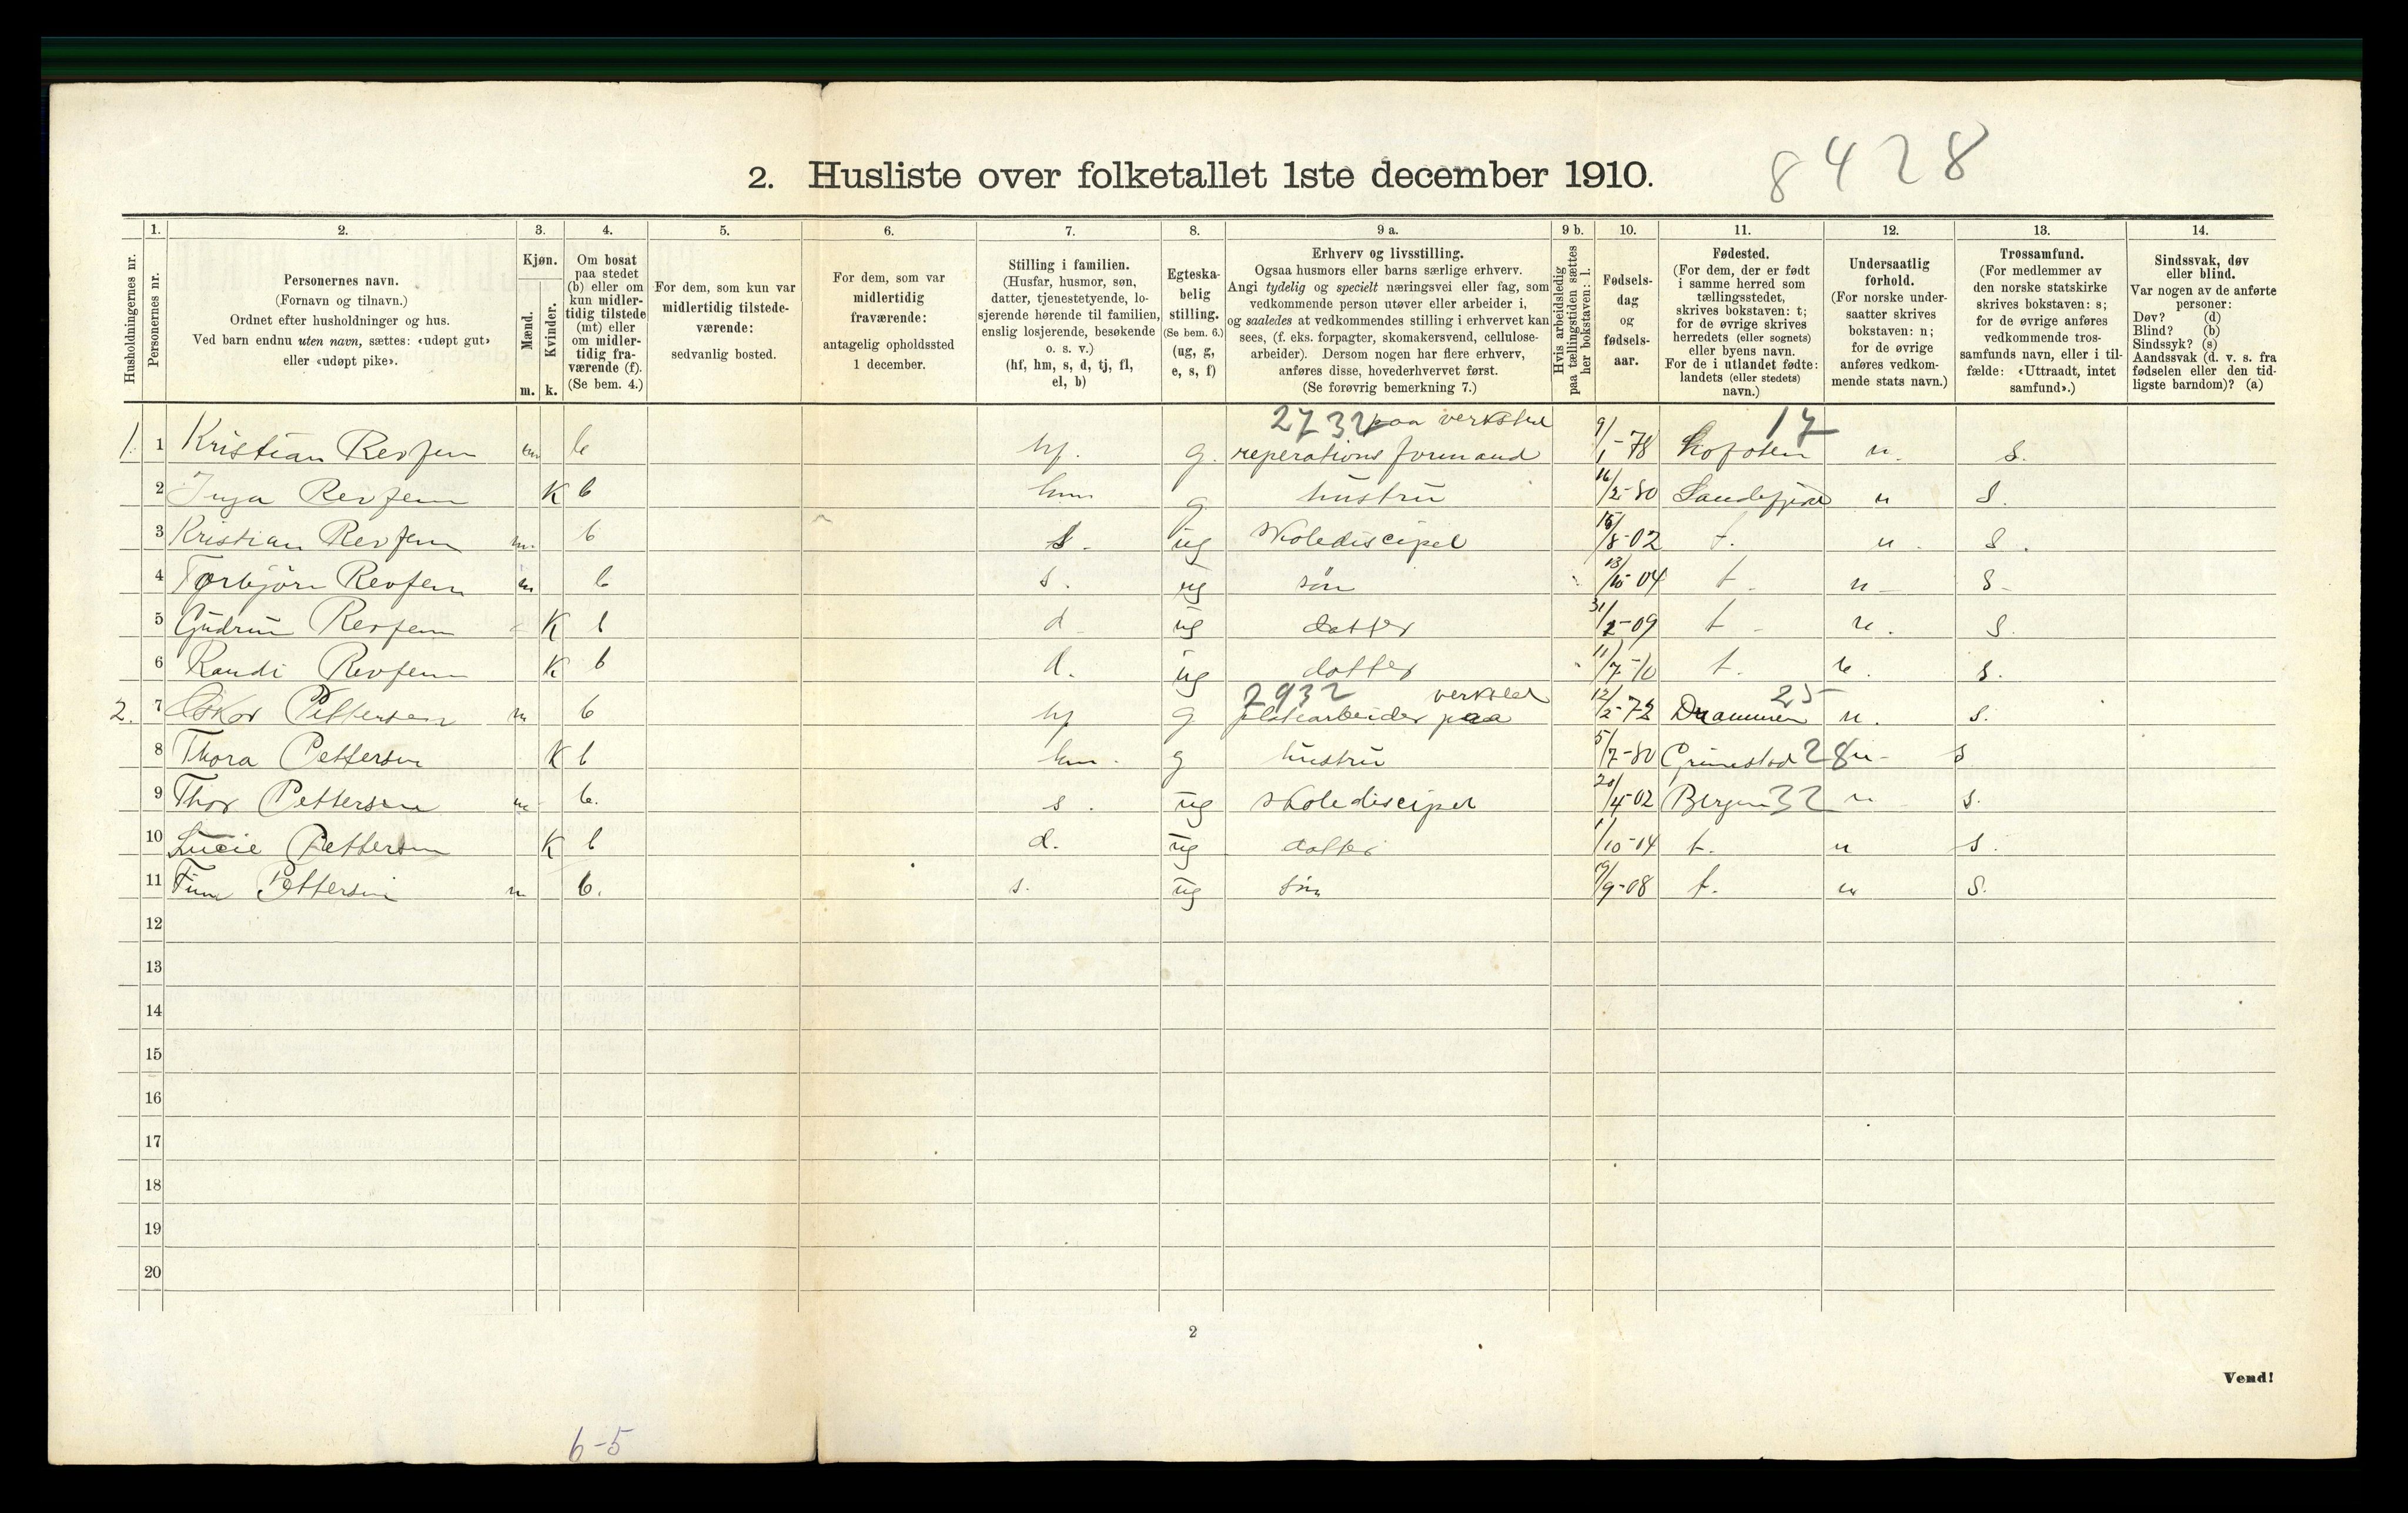 2. Husliste over folketallet 1ste december 1910.
8428
Husholdningernes nr.
1.
Personernes nr.
2.
Personernes navn.
(Fornavn og tilnavn.)
Ordnet efter husholdninger og hus.
Ved barn endnu uten navn, sættes: «udøpt gut»
eller «udøpt pike».
3.
Kjøn.
Mænd.
m.
Kvinder.
k.
4.
Om bosat
paa stedet
(b) eller om
kun midler-
tidig tilstede
(mt) eller
om midler-
tidig fra-
værende (f).
(Se bem. 4.)
5.
For dem, som kun var
midlertidig tilstede-
værende:
sedvanlig bosted.
6.
For dem, som var
midlertidig
fraværende:
antagelig opholdssted
1 december.
7.
Stilling i familien.
(Husfar, husmor, søn,
datter, tjenestetyende, lo-
sjerende hørende til familien,
enslig losjerende, besøkende
o. s. v.)
(hf, hm, s, d, tj, fl,
el, b)
8.
Egteska-
belig
stilling.
(Se bem. 6.)
(ug, g,
e, s, f)
9 a.
Erhverv og livsstilling.
Ogsaa husmors eller barns særlige erhverv.
Angi tydelig og specielt næringsvei eller fag, som
vedkommende person utøver eller arbeider i,
og saaledes at vedkommendes stilling i erhvervet kan
sees, (f. eks. forpagter, skomakersvend, cellulose-
arbeider). Dersom nogen har flere erhverv,
anføres disse, hovederhvervet først.
(Se forøvrig bemerkning 7.)
9 b.
Hvis arbeidsledig
paa tællingstiden sættes
her bokstaven: l.
10.
Fødsels-
dag
og
fødsels-
aar.
11.
Fødested.
(For dem, der er født
i samme herred som
tællingsstedet,
skrives bokstaven: t;
for de øvrige skrives
herredets (eller sognets)
eller byens navn.
For de i utlandet fødte:
landets (eller stedets)
navn.)
12.
Undersaatlig
forhold.
(For norske under-
saatter skrives
bokstaven: n;
for de øvrige
anføres vedkom-
mende stats navn.)
13.
Trossamfund.
(For medlemmer av
den norske statskirke
skrives bokstaven: s;
for de øvrige anføres
vedkommende tros-
samfunds navn, eller i til-
fælde: «Uttraadt, intet
samfund».)
14.
Sindssvak, døv
eller blind.
Var nogen av de anførte
personer:
Døv? (d)
Blind? (b)
Sindssyk? (s)
Aandssvak (d. v. s. fra
fødselen eller den tid-
ligste barndom)? (a)
2732 paa verksted 17
1. 1 Kristian m b hf. g. reperations formand 9/1-78 Lofoten n. s.
2 Inga K b hm g hustru 16/2-80 Sandefjord n s.
3 Kristian m. b s. ug Skolediscipel 15/8-02 t. n. s.
4 Torbjørn m b s. ug søn 13/10-04 t. n s
5 Gudrun K b d ug datter 31/2-09 t n. s.
6 Randi K b d. ug datter 11/7-10 t. n. s.
2932 verksted 25
2. 7 Oskar Pettersen m b hf g platearbeider paa 12/2-72 Drammen n. s.
8 Thora Pettersen K b hm. g hustru 5/7-80 Grimestad 28 n s
9 Thor Pettersen m b. s. ug skolediscipel 20/4-02 Bergen 32 n s.
10 Lucie Pettersen K b d. ug datter 1/10-04 t. n s.
11 Finn Pettersen m b. s. ug søn 19/9-08 t. n s.
12
13
14
15
16
17
18
19
20
2
Vend!
6-5